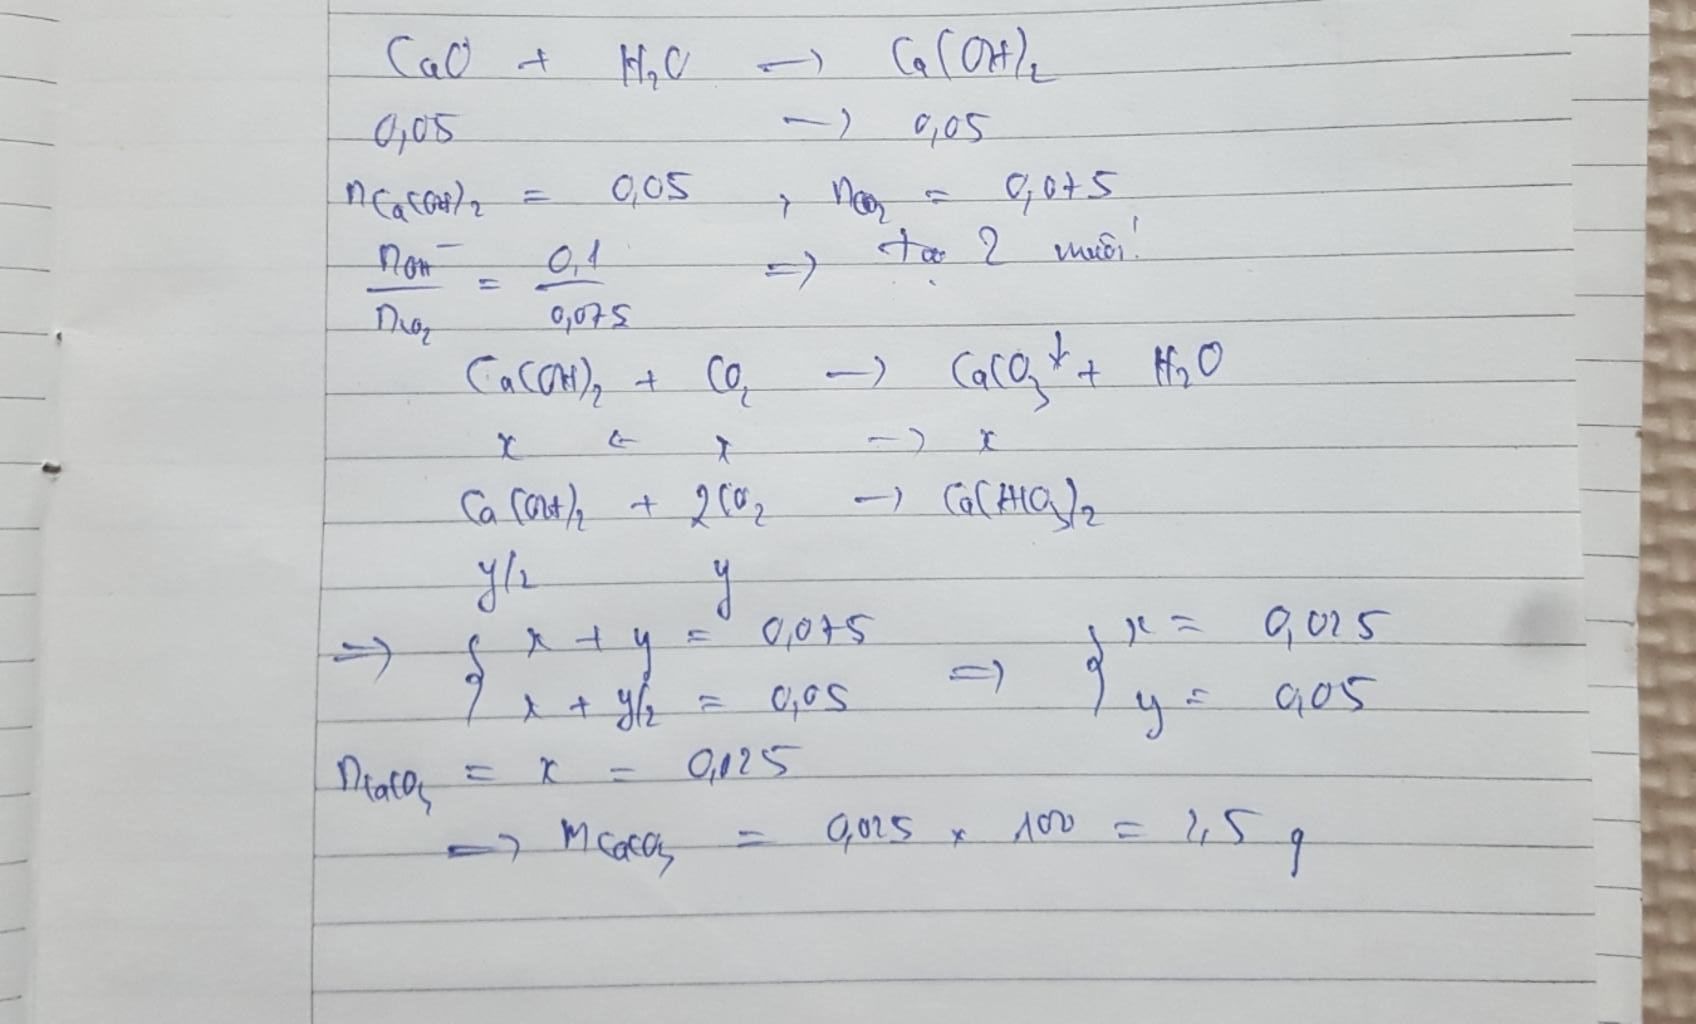 CaO + H₂O → Ca(OH)₂
0,05 → 0,05
nCa(OH)₂ = 0,05 , nCO₂ = 0,075
nOH⁻/nCO₂ = 0,1/0,075 ⇒ tạo 2 muối!
Ca(OH)₂ + CO₂ → CaCO₃↓ + H₂O
x ← x → x
Ca(OH)₂ + 2CO₂ → Ca(HCO₃)₂
y/2 y
⇒ { x + y = 0,075 ⇒ { x = 0,025
x + y/2 = 0,05 y = 0,05
nCaCO₃ = x = 0,025
⇒ mCaCO₃ = 0,025 × 100 = 2,5 g